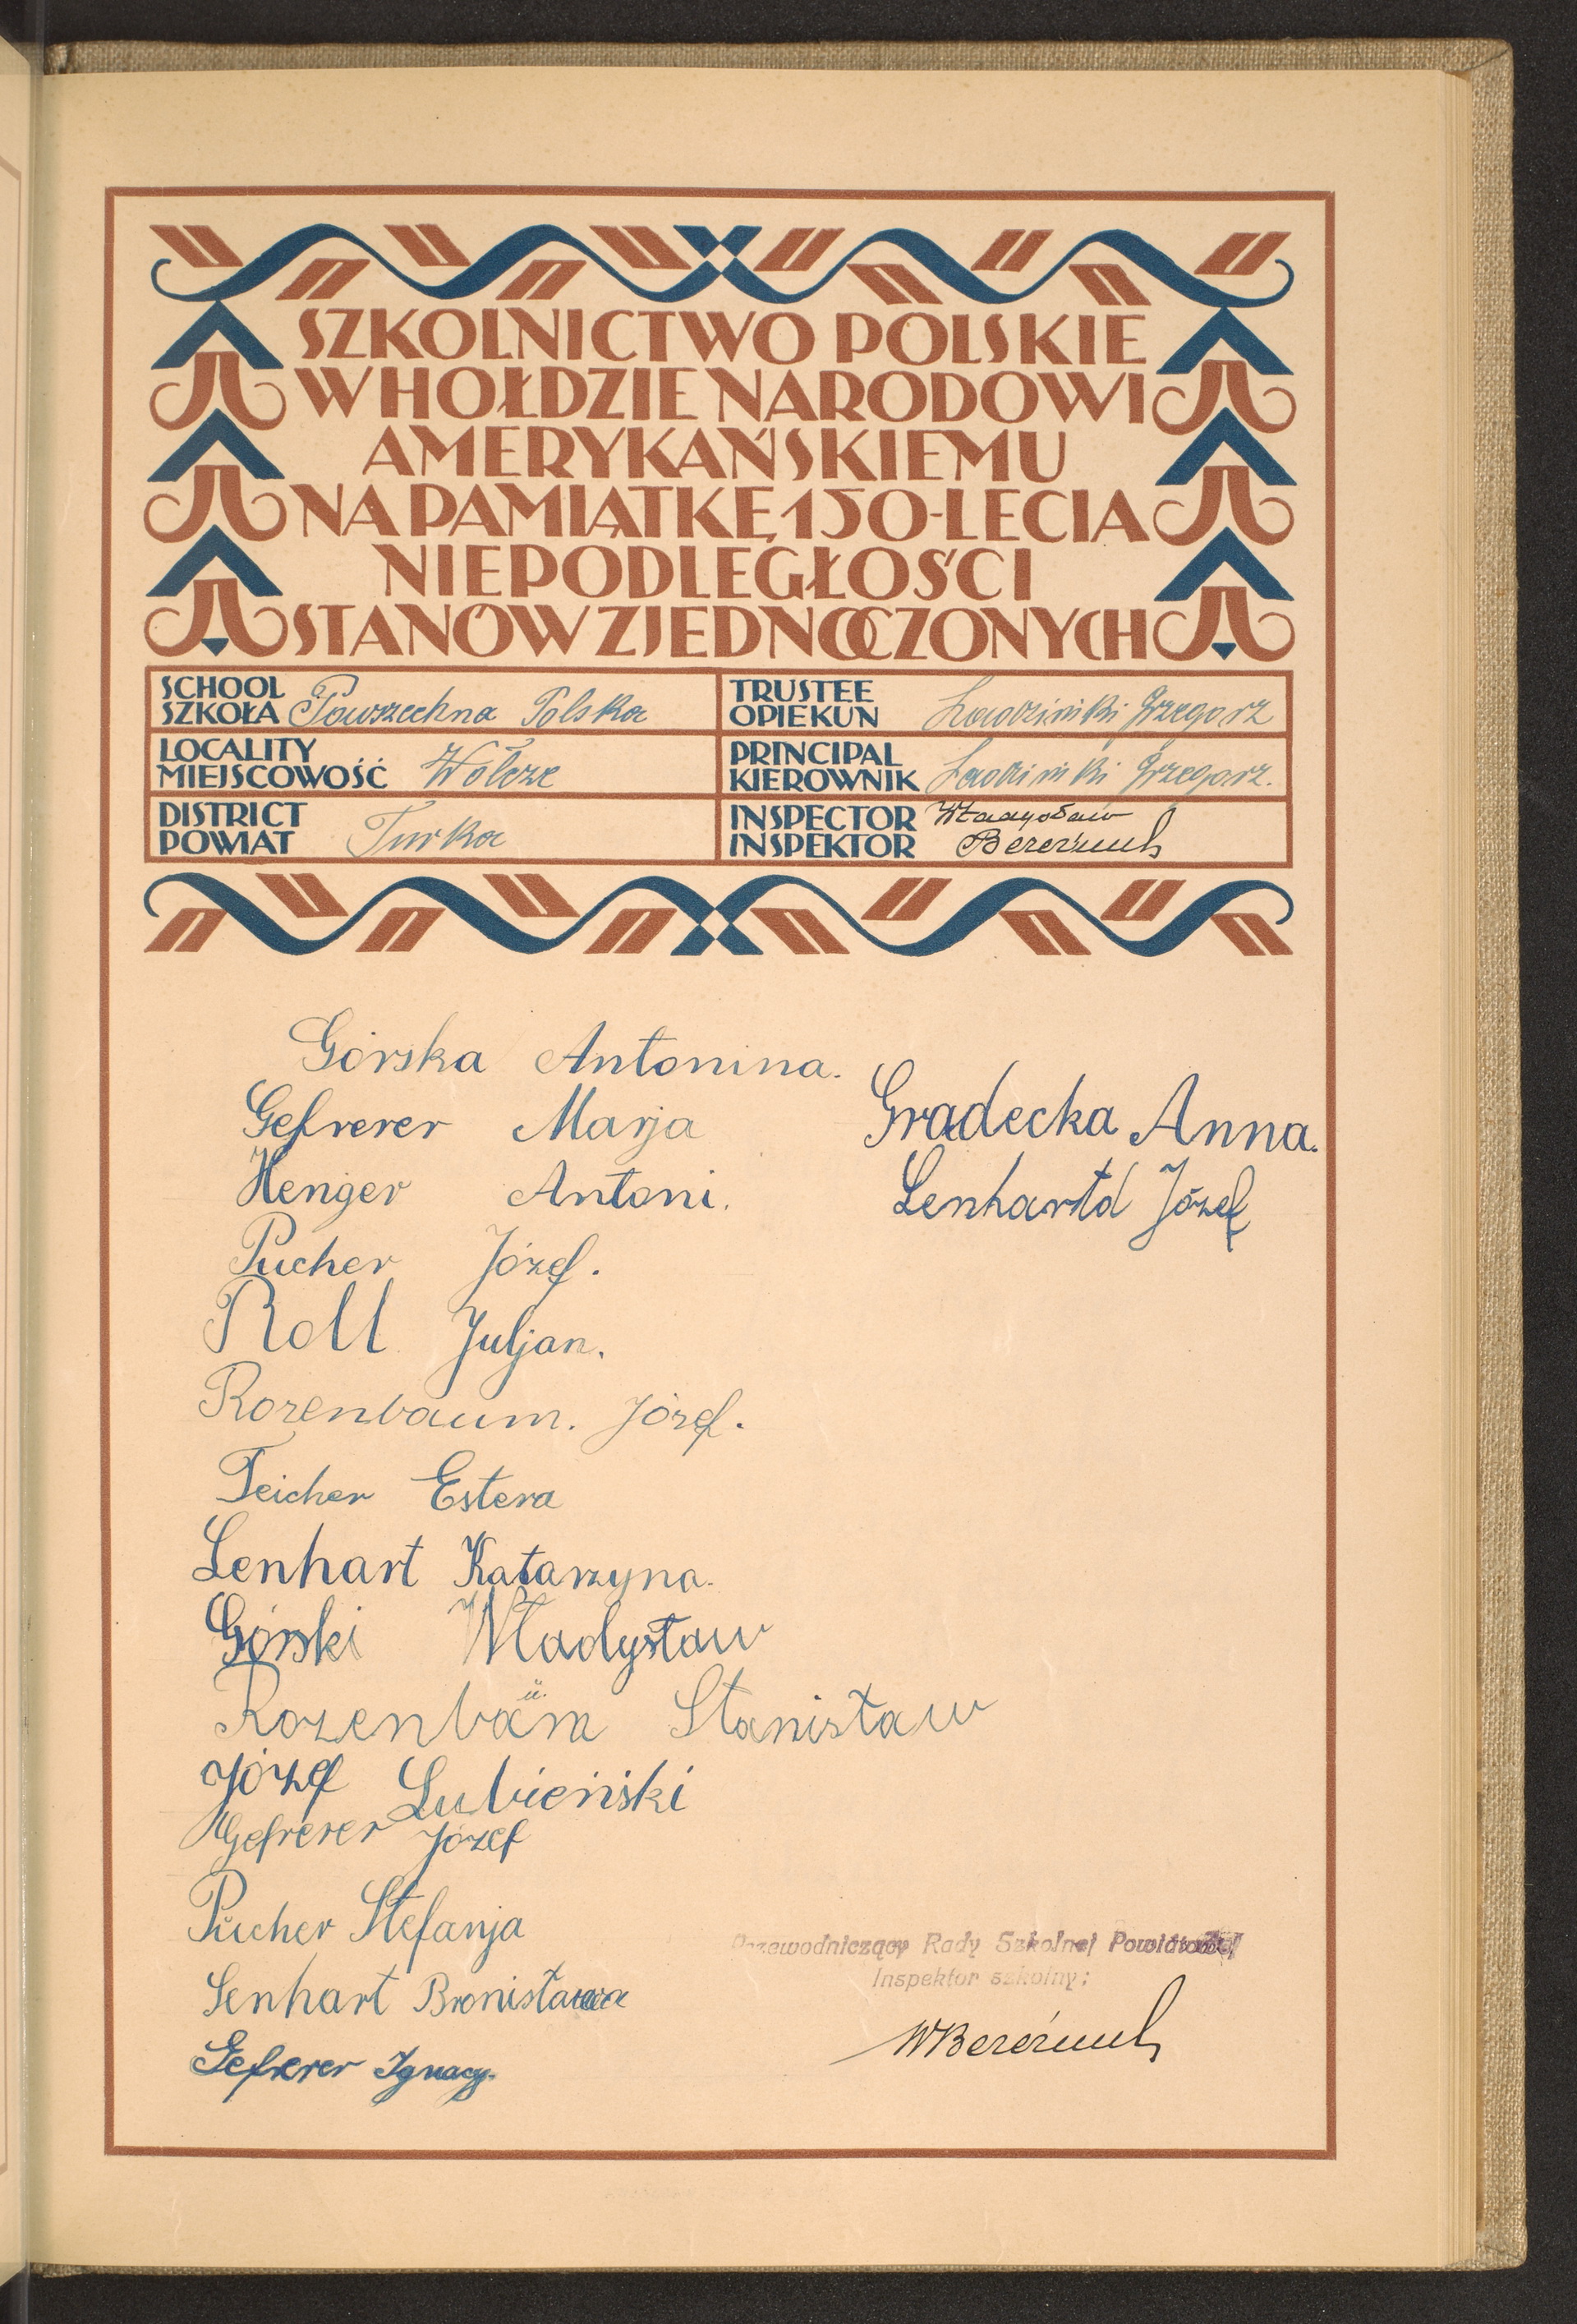 SZKOLNICTWO POLSKIE
W HOŁDZIE NARODOWI
AMERYKAŃSKIEMU
NA PAMIĄTKĘ 150-LECIA
NIEPODLEGŁOŚCI
STANÓW ZJEDNOCZONYCH
SCHOOL
SZKOŁA Powszechna Polska
TRUSTEE
OPIEKUN Grzegorz
LOCALITY
MIEJSCOWOŚĆ Wołcze
PRINCIPAL
KIEROWNIK Grzegorz.
DISTRICT
POWIAT Turka
INSPECTOR Władysław
INSPEKTOR
Górska Antonina.
Gefrerer Marja
Gradecka Anna.
Henger Antoni.
Lenhartd Józef
Pucher Józef.
Roll Juljan.
Rozenbaum. Józef.
Teicher Estera
Lenhart Katarzyna.
Górski Władysław
Rozenbaüm Stanisław
Józef Łubieński
Gefrerer Józef
Pucher Stefanja
Lenhart Bronisława
Gefrerer Ignacy.
Przewodniczący Rady Szkolnej Powiatowej
Inspektor szkolny: